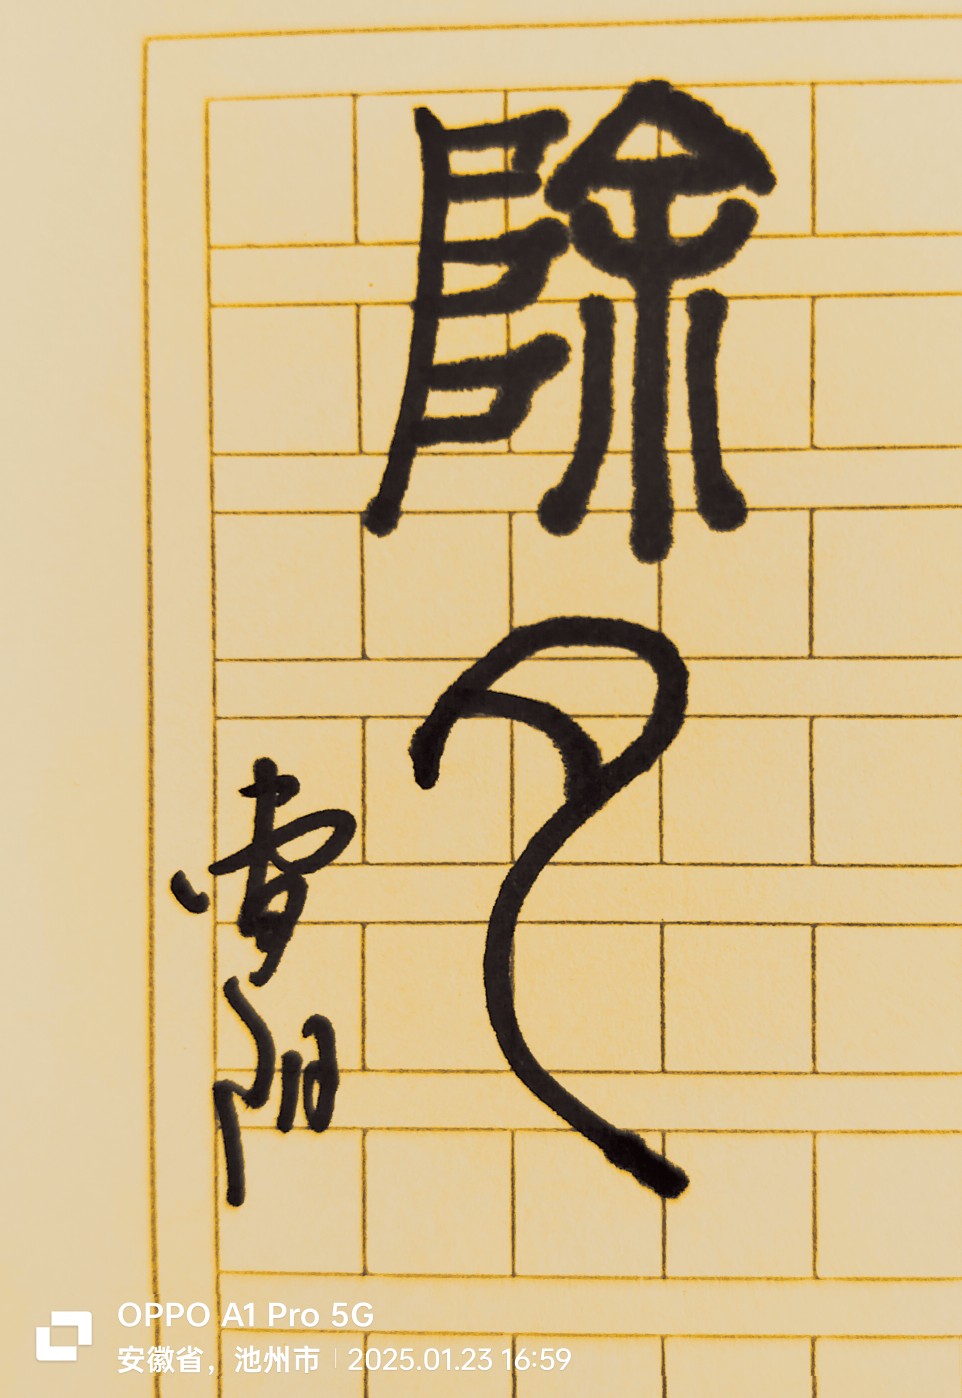 除夕
OPPO A1 Pro 5G
安徽省，池州市 | 2025.01.23 16:59